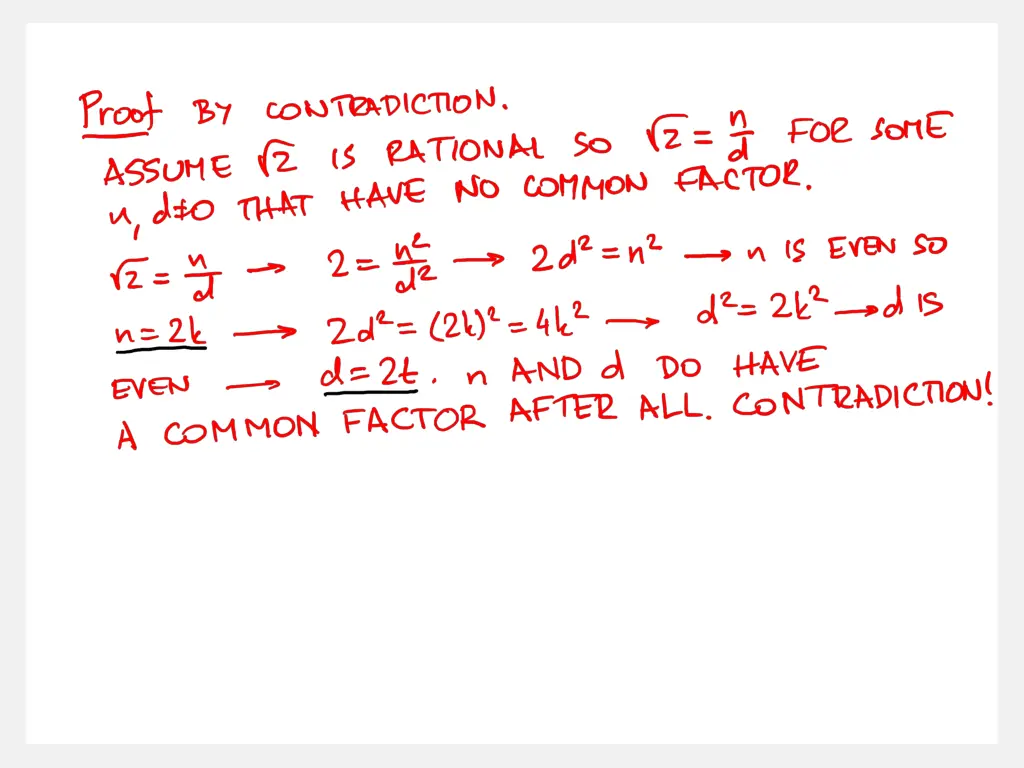 Proof BY CONTRADICTION.
ASSUME √2 IS RATIONAL SO √2 = n/d FOR SOME
n, d≠0 THAT HAVE NO COMMON FACTOR.
√2 = n/d → 2 = n²/d² → 2d² = n² → n IS EVEN SO
n = 2k → 2d² = (2k)² = 4k² → d² = 2k² → d IS
EVEN → d = 2t. n AND d DO HAVE
A COMMON FACTOR AFTER ALL. CONTRADICTION!